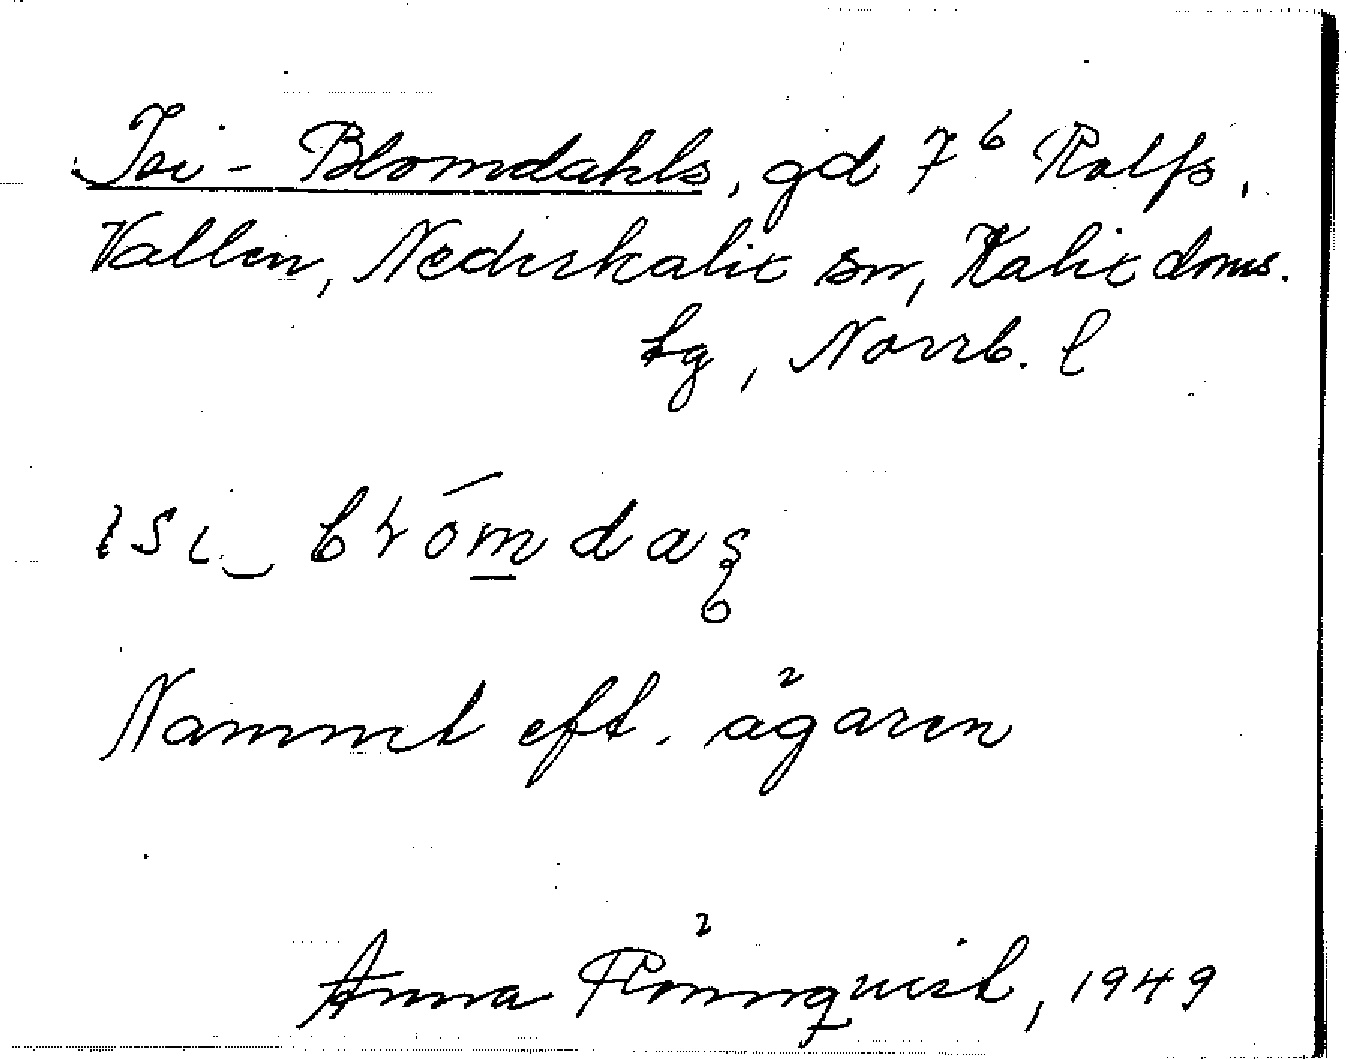 Isi-Blomdahls, gd 7⁶ Rolfs,
Vallen, Nederkalix sn, Kalix doms.
lg, Norrb. l
Namnet eft. ägaren
Anna Rönnquist, 1949